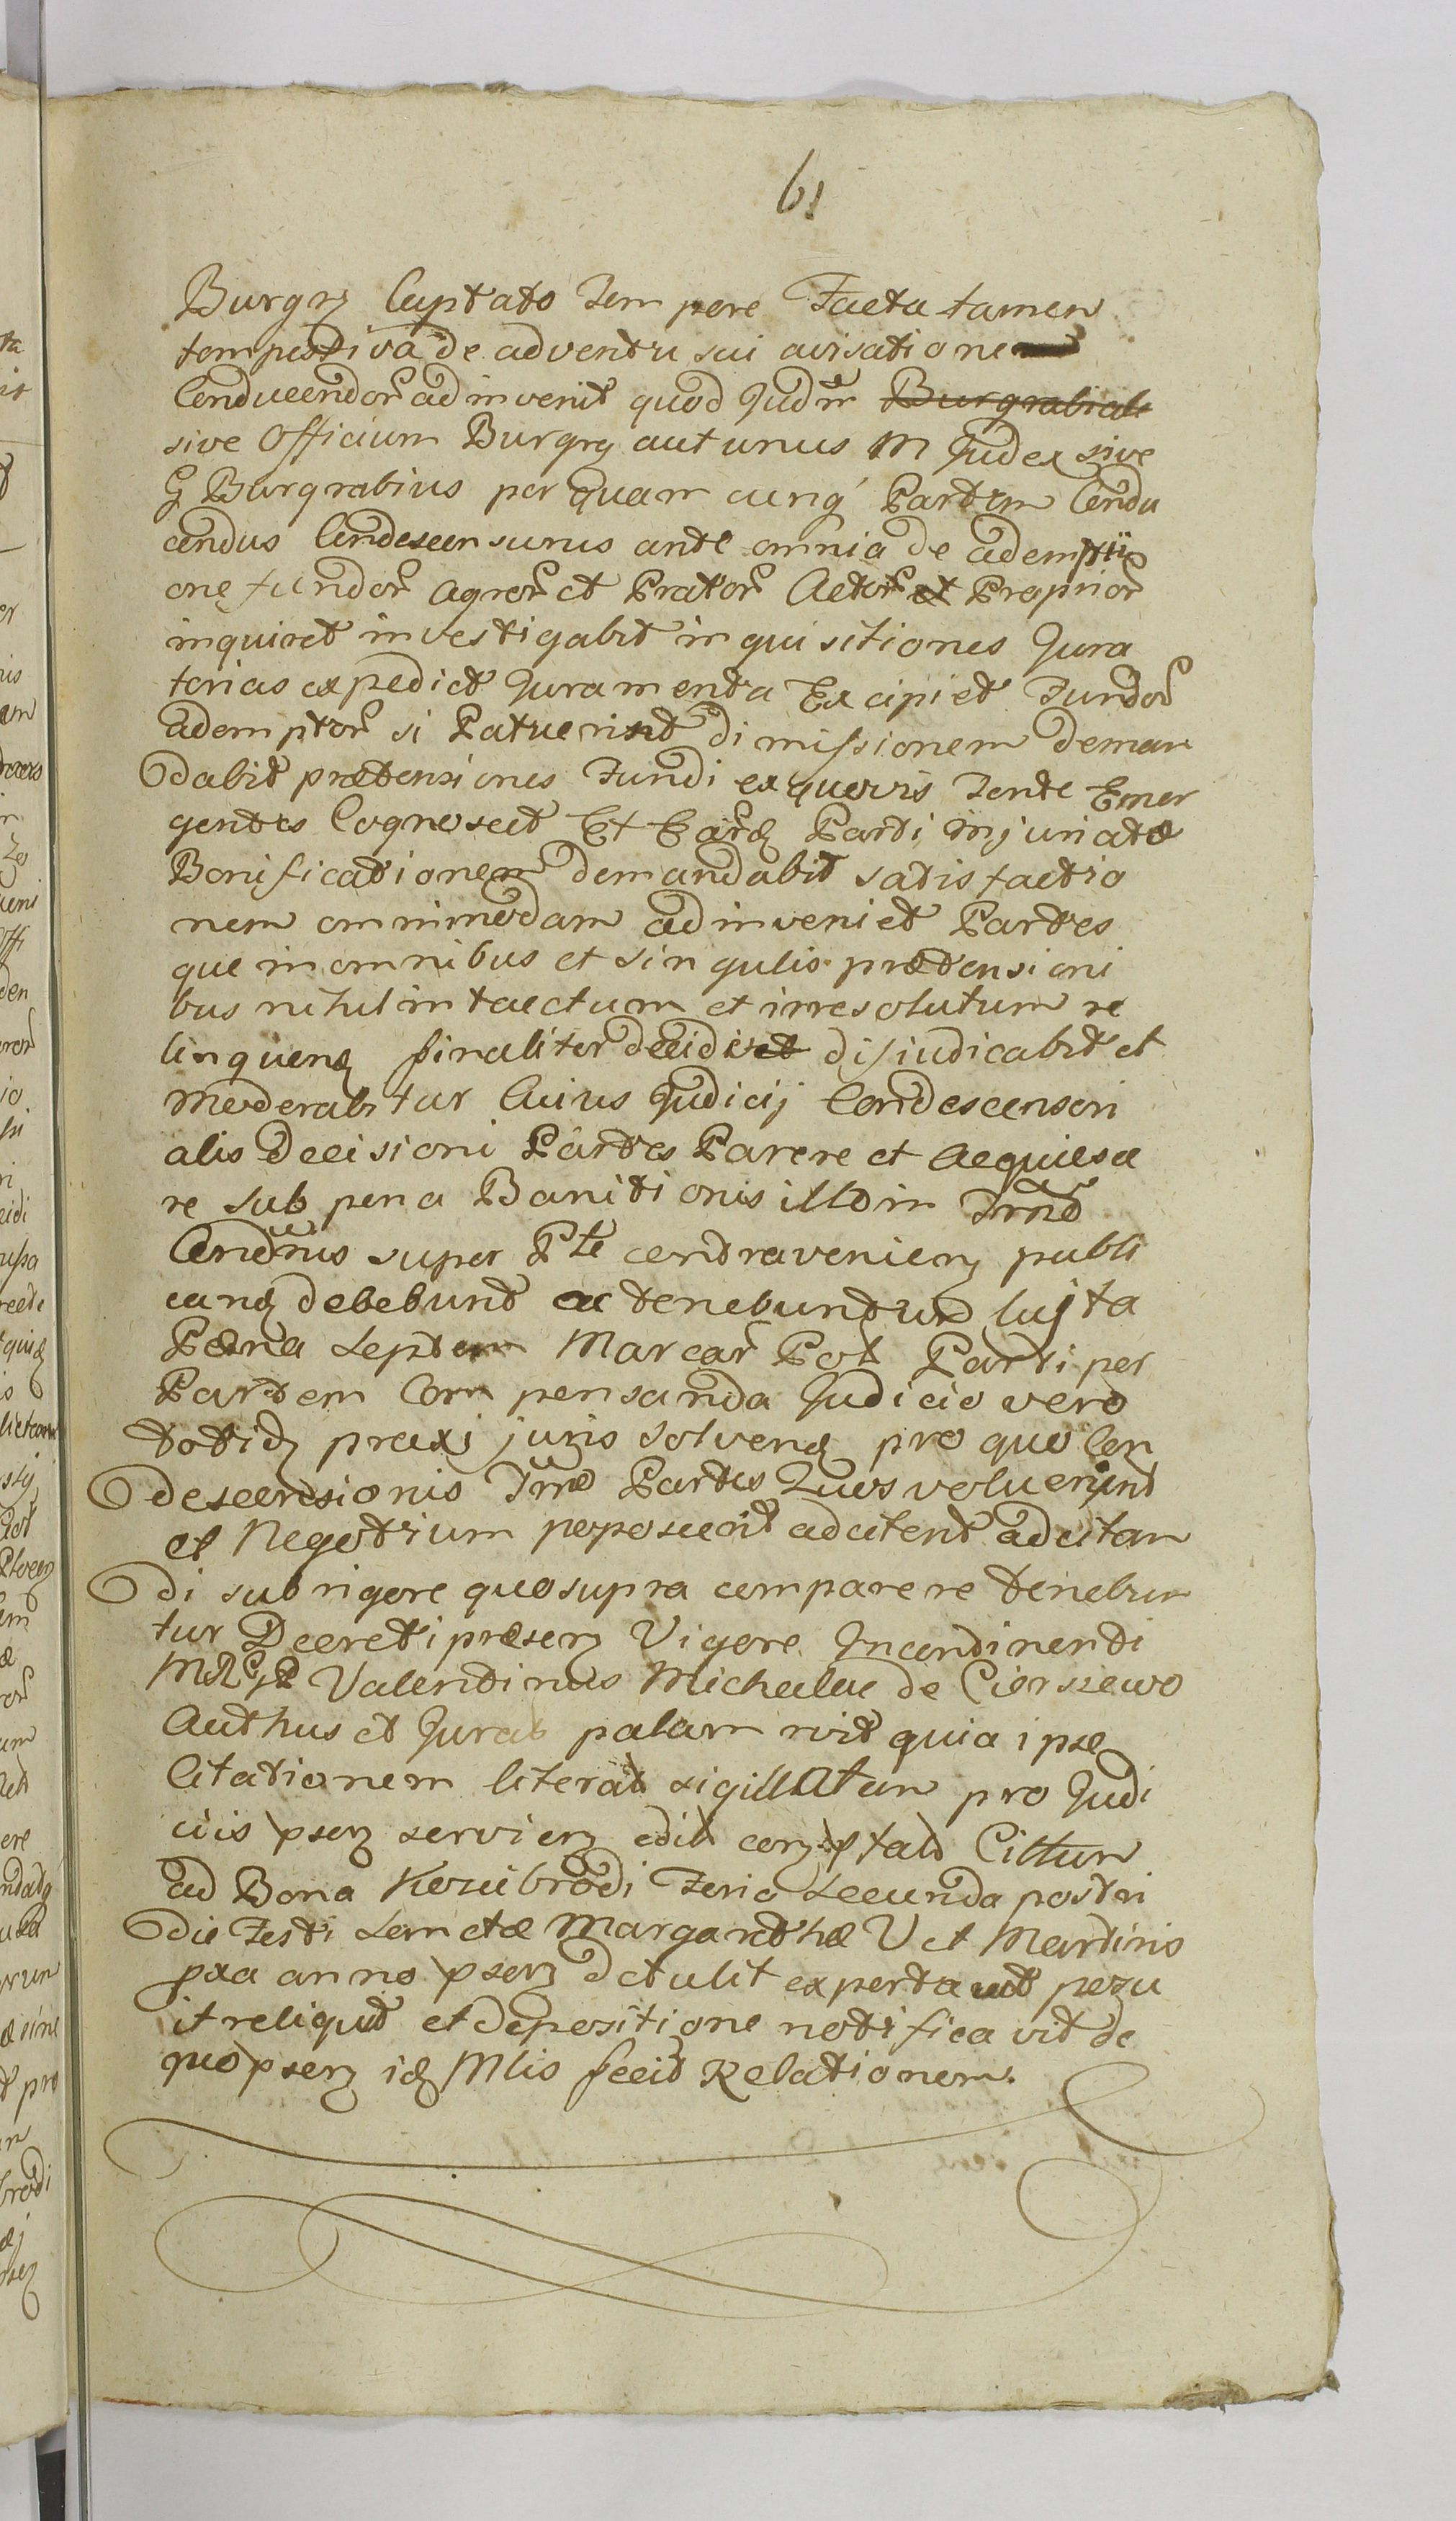 61
Burgr Captato Tempore Facta tamen
tempestiva de adventu sui avisatione
Conducendor adinvenit quod Judm Burgrabiale
sive Officium Burgr aut unus M Judex sive
G Burgrabius per quam cunq Partem Condu
cendus Condescensurus ante omnia de adempti
one fundor Agror et Prator Actor et Proprior
inquiret investigabit inquisitiones Jura
torias expediet Juramenta Excipiet Fundor
ademptor si Patuerint dimissionem deman
dabit prætensiones Fundi ex quovis Fonte Emer
gentes Cognoscet Et Earq Parti injuriatæ
Bonificationem demandabit satisfactio
nem omnimodam adinveniet Partes
que in omnibus et singulis prætensioni
bus nihil intactum et irresolutum re
linquenq finaliter decidet dijudicabit et
moderabitur Cuius Judicij Condescensori
alis Decisioni Partes Parere et Acquiesce
re sub pena Banitionis illo in
super Pte contravenien publi
canq debebunt ac tenebuntur luita
Pæna Septem Marcar Pol Parti per
Partem Compensanda Judicio vero
totidq praxi juris solvenq pro quo Con
descensionis Tmo Partes Quos voluerint
et Negotium poposcerit adcitent adcitan
di sub rigore quo supra comparere tenebun
tur Decreti præsen Vigore Incontinenti
Valentinus Michalae de Cierszewo
Authus et Jurat palam rvit quia ipse
Citationem literat sigillatam pro Judi
ciis psen servien edit
ad Bona Kozibrodi Feria Secunda postri
die Festi Sanctæ Margarethæ V et Martiris
pxa anno psen detulit posu
it reliquit et depositione notificavit de
quo psen idq Mlis fecit Relationem.